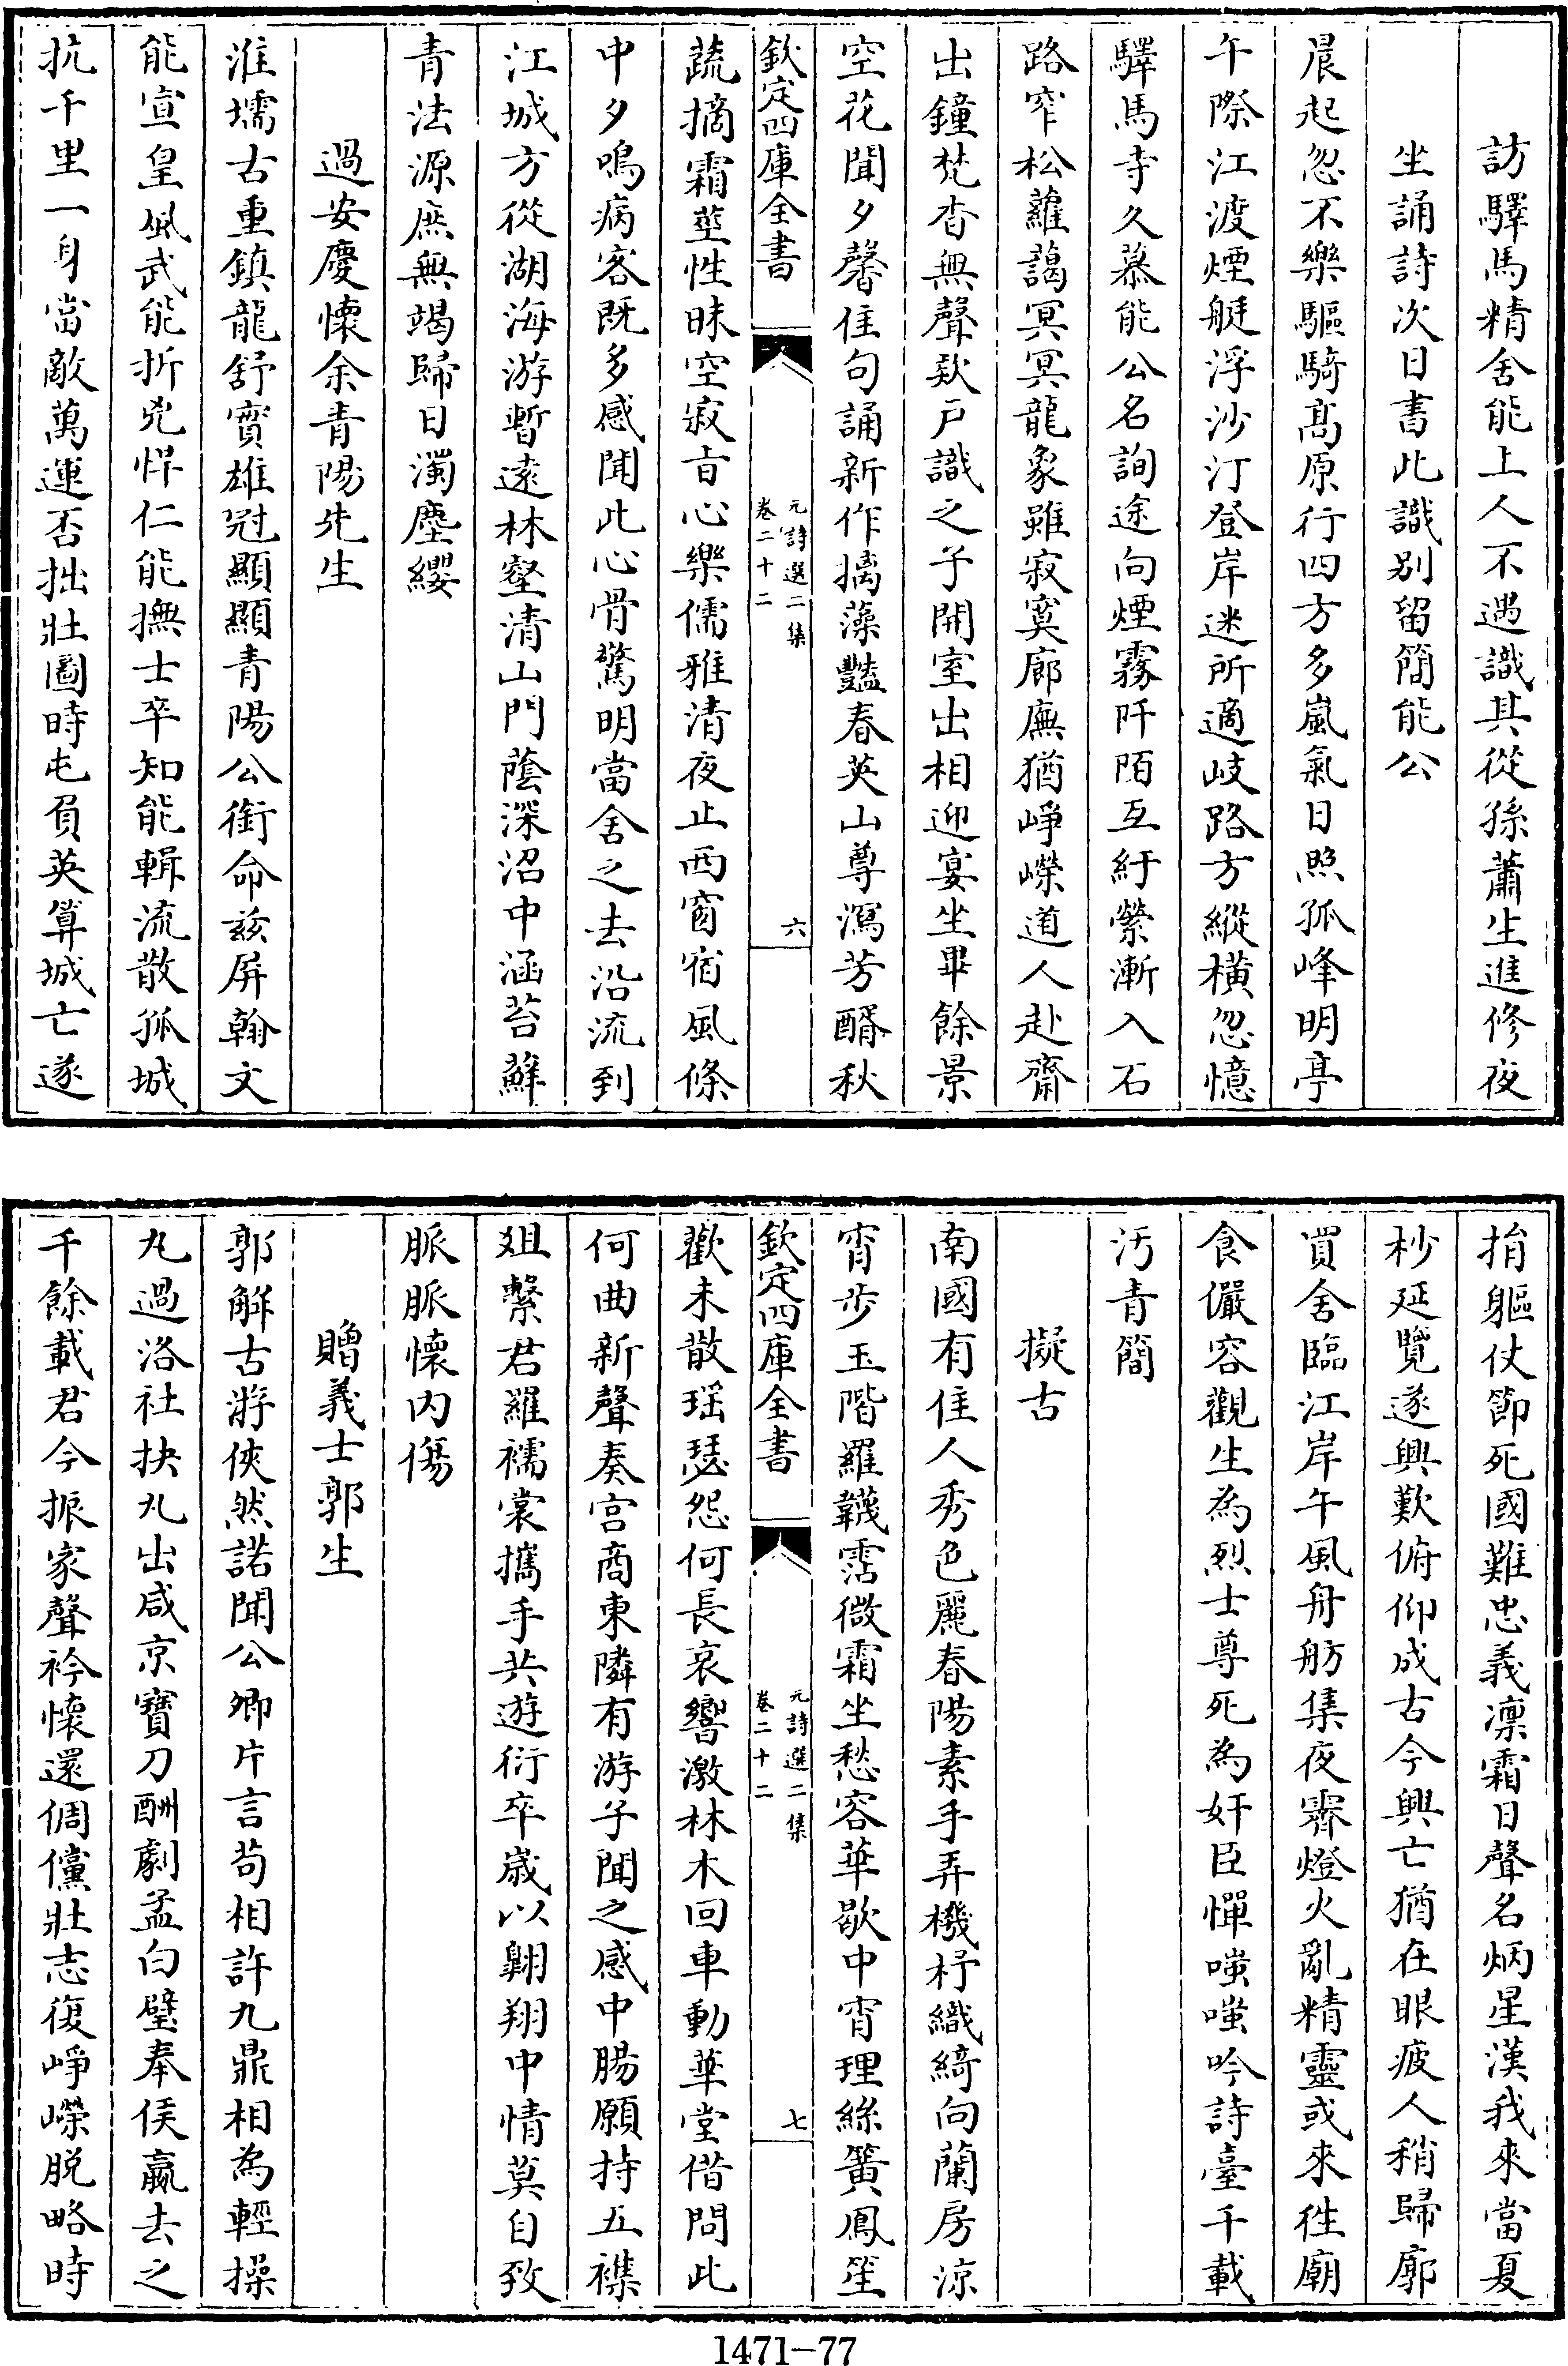 訪驛馬精舍能上人不遇識其從孫蕭生進修夜
坐誦詩次日書此識别留簡能公
晨起忽不樂驅騎髙原行四方多嵐氣日照孤峰明亭
午際江渡煙艇浮沙汀登岸迷所適岐路方縱横忽憶
驛馬寺久慕能公名詢途向煙霧阡陌互紆縈漸入石
路窄松蘿藹冥冥龍象雖寂寞廊廡猶崢嶸道人赴齋
出鐘梵杳無聲欵户識之子開室出相迎宴坐畢餘景
空花聞夕馨佳句誦新作摛藻豔春英山尊瀉芳醑秋
欽定四庫全書
元詩選二集
卷二十二
六
蔬摘霜莖性昧空寂旨心樂儒雅清夜止西窗宿風條
中夕鳴病客既多感聞此心骨驚明當舍之去沿流到
江城方從湖海游暫遠林壑清山門蔭深沼中涵苔蘚
青法源庶無竭歸日濁塵纓
過安慶懷余青陽先生
淮壖古重鎮龍舒實雄冠顯顯青陽公銜命兹屏翰文
能宣皇風武能折兇悍仁能撫士卒知能輯流散孤城
抗千里一身當敵萬運否拙壯圖時屯負英算城亡遂
捐軀仗節死國難忠義凛霜日聲名炳星漢我來當夏
杪延覽遂興歎俯仰成古今興亡猶在眼疲人稍歸廓
買舍臨江岸午風舟舫集夜霽燈火亂精靈或來往廟
食儼容觀生為烈士尊死為奸臣憚嗤嗤吟詩臺千載
汚青簡
擬古
南國有佳人秀色麗春陽素手弄機杼織綺向蘭房凉
宵步玉階羅韈霑微霜坐愁容華歇中宵理絲簧鳳笙
欽定四庫全書
元詩選二集
卷二十二
七
歡未散瑶瑟怨何長哀響激林木回車動華堂借問此
何曲新聲奏宫商東隣有游子聞之感中腸願持五襍
爼繫君羅襦裳攜手共遊衍卒嵗以翺翔中情莫自致
脈脈懷内傷
贈義士郭生
郭解古游俠然諾聞公卿片言茍相許九鼎相為輕操
丸過洛社抉丸出咸京寶刀酬劇孟白璧奉侯嬴去之
千餘載君今振家聲衿懷還倜儻壯志復崢嶸脱略時
1471-77